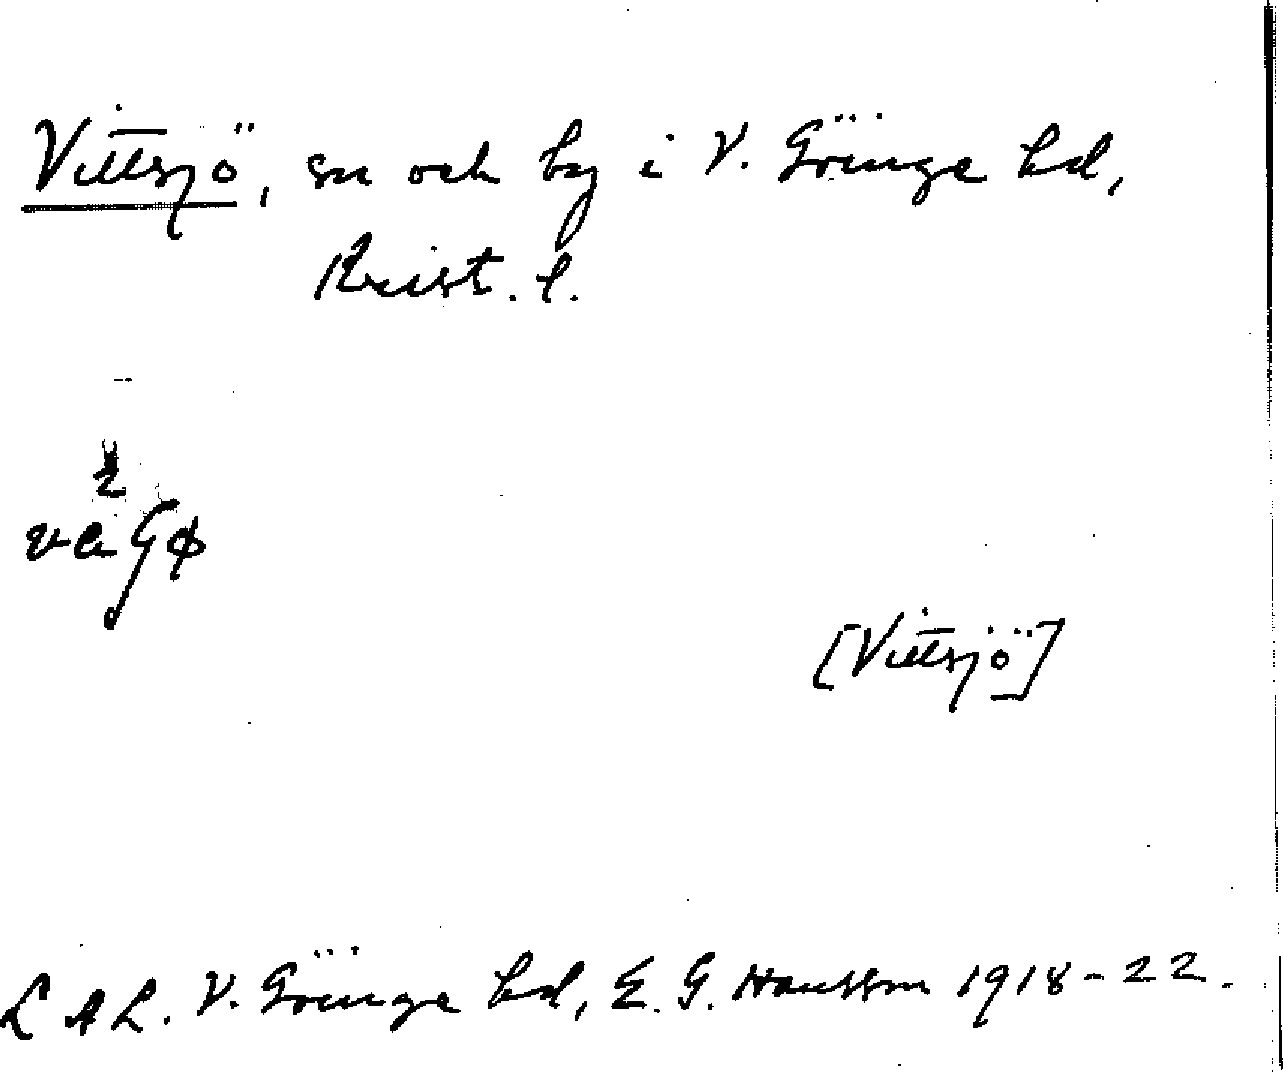 Vittsjö, sn och by i V. Göinge hd,
Krist. l.
[Vittsjö]
L A L. V. Göinge hd, E. G. Hansson 1918-22.